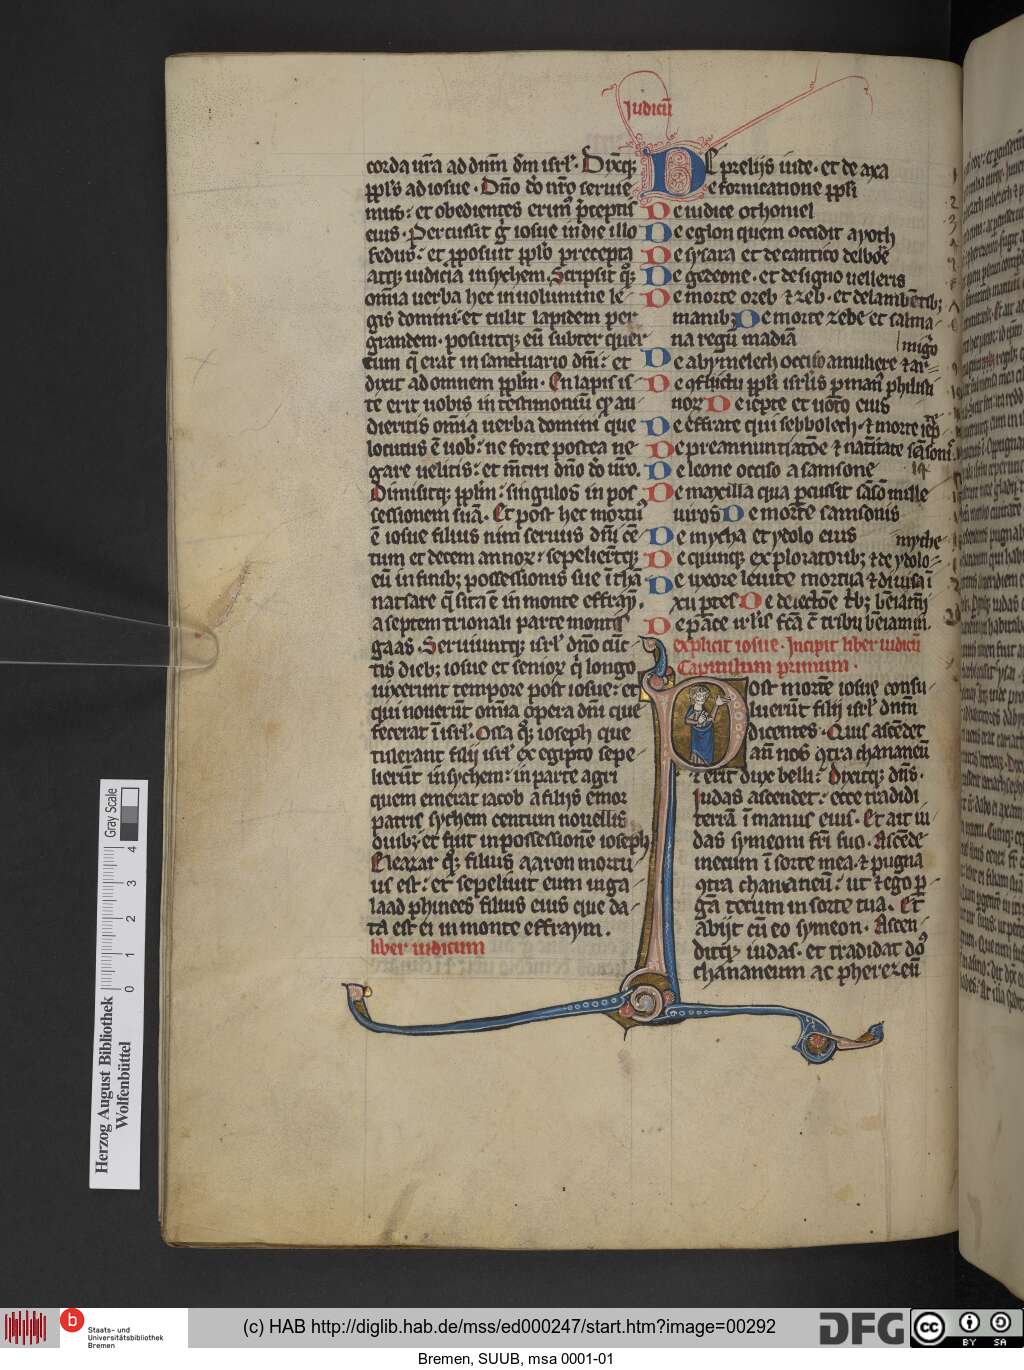 Iudicū
corda vr̄a ad dnm̄ dm̄ isrl̓. Dixitq;
ppl̓s ad iosue. Dn̄o dō nr̄o seruie
mus: et obedientes erim̓ p̄ceptis
eius. Percussit g̊ iosue in die illo
fedus: et p̱posuit ppl̓o precepta
atq; iudicia in sychem. Scripsit q̊;
om̄ia uerba hec in uolumine le
gis domini: et tulit lapidem per
grandem. posuitq; eū subter quer
cum q̄ erat in sanctuario dn̄i: et
dixit ad omnem pplm̄. En lapis is
te erit uobis in testimoniū ꝙ au
dieritis om̄ia uerba domini que
locutus ē uob: ne forte postea ne
gare uelitis: et m̄tiri dn̄o dō ur̄o.
Dimisitq; pplm̄: singulos in pos
sessionem suā. Et post hec mortu
ē iosue filius nun seruus dn̄i cē
tum et decem annoꝝ: sepelier̄tq;
eū in finib; possessionis sue ī thā
natsare q̄ sita ē in monte effraȳ.
a septem trionali parte montis
gaas. Seruiuitq; isrl̓ dn̄o cūc
tis dieb; iosue et senioꝝ q̇ longo
uixerunt tempore post iosue: et
qui nouerūt om̄ia opera dn̄i que
fecerat ī isrl̓. Ossa q̊; ioseph que
tulerant filij isrl̓ ex egipto sepe
lierūt in sychem: in parte agri
quem emerat iacob a filijs emor
patris sychem centum nouellis
ouib; et fuit in possessionē ioseph
Eleazar q̊; filius aaron mortu
us est: et sepeliuit eum in ga
laad phinees filius eius que da
ta est ei in monte effraym.
liber iudicum
De prelijs iude. et de axa
De fornicatione ppl̓i
De iudice othoniel
De eglon quem occidit ayoth
De sysara et de cantico delboē
De gedeone. et de signo uelleris
De morte oreb ⁊ zeb. et de lambētib;
manib; De morte zebe et salma
na regū madiā
De abymelech occiso a muliere ⁊ ar
migō
De ꝯflictu ppl̓i isrl̓is ꝯ man̄ philisti
noꝝ De iepte et uōto eius
De effrate qui sebbolech. ⁊ morte iep
De preannuntiatōe ⁊ natītate sāsonis
De leone occiso a samsone
De maxilla qua ꝑcussit sāsō mille
uiros De morte samsonis
De mycha et ydolo eius myche
De quinq; exploratorib; ⁊ de ydolo
De uxore leuite mortua ⁊ diuisa ī
xii ꝑtes De deiectōe t̄b; beīamī
De pace isrl̓is fc̄a c̄ tribu beīamin.
explicit iosue. Incipit liber iudicū
Capitulum primum.
Post mortē iosue consu
luerūt filij isrl̓ dnm̄
dicentes. Quis ascēdet
an̄ nos ꝯtra chananeū
⁊ erit dux belli? Dixitq; dn̄s.
Iudas ascendet: ecce tradidi
terrā ī manus eius. Et ait iu
das symeoni fr̄i suo. Ascēde
mecum ī sorte mea. ⁊ pugna
ꝯtra chananeū: ut ⁊ ego ꝑ
gā tecum in sorte tua. Et
abijt cū eo symeon. Ascen
ditq; iudas. et tradidit dō̄s
chananeum ac pherezeū
Gray Scale
0 1 2 3 4
Herzog August Bibliothek
Wolfenbüttel
b
Staats- und
Universitätsbibliothek
Bremen
(c) HAB http://diglib.hab.de/mss/ed000247/start.htm?image=00292
DFG
cc
BY SA
Bremen, SUUB, msa 0001-01